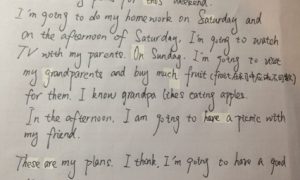 for this weekend.
I'm going to do my homework on Saturday and
on the afternoon of Saturday, I'm going to watch
TV with my parents. On Sunday. I'm going to visit
my grandparents and buy much fruit (fruit
for them. I know grandpa likes eating apples.
In the afternoon, I am going to have a picnic with
my friend.
These are my plans. I think, I'm going to have a good